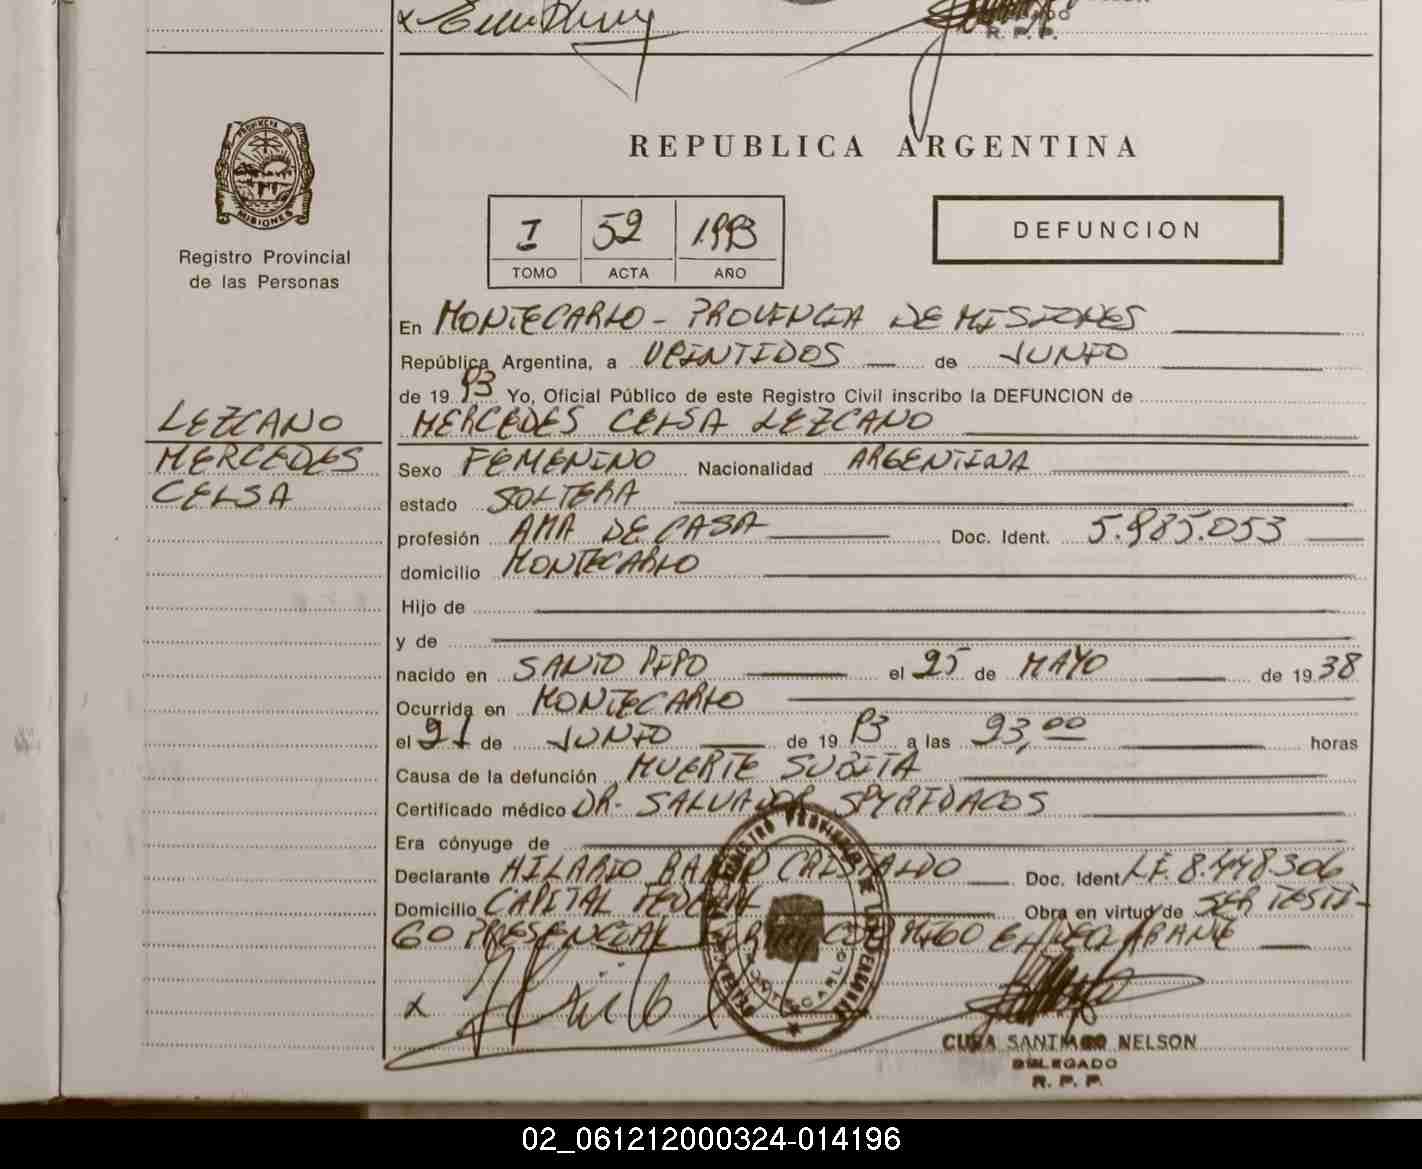 R. P. P.
PROVINCIA DE
MISIONES
Registro Provincial
de las Personas
REPUBLICA ARGENTINA
I 52 1993
TOMO ACTA AÑO
DEFUNCION
En MONTECARLO - PROVINCIA DE MISIONES
República Argentina, a VEINTIDOS de JUNIO
de 19 93 Yo, Oficial Público de este Registro Civil inscribo la DEFUNCION de
LEZCANO
MERCEDES
CELSA
MERCEDES CELSA LEZCANO
Sexo FEMENINO Nacionalidad ARGENTINA
estado SOLTERA
profesión AMA DE CASA Doc. Ident. 5.985.053
domicilio MONTECARLO
Hijo de
y de
nacido en SANTO PIPO el 25 de MAYO de 19 38
Ocurrida en MONTECARLO
el 21 de JUNIO de 19 93 a las 23,00 horas
Causa de la defunción MUERTE SUBITA
Certificado médico DR. SALVADOR SPYRIDACOS
Era cónyuge de
Declarante HILARIO RAMON CRISTALDO Doc. Ident L.E. 8.448306
Domicilio CAPITAL FEDERAL Obra en virtud de SER TESTI-
GO PRESENCIAL FIRMA CONMIGO EL DECLARANTE
x
MONTECARLO
CUBA SANTIAGO NELSON
DELEGADO
R. P. P.
02_061212000324-014196